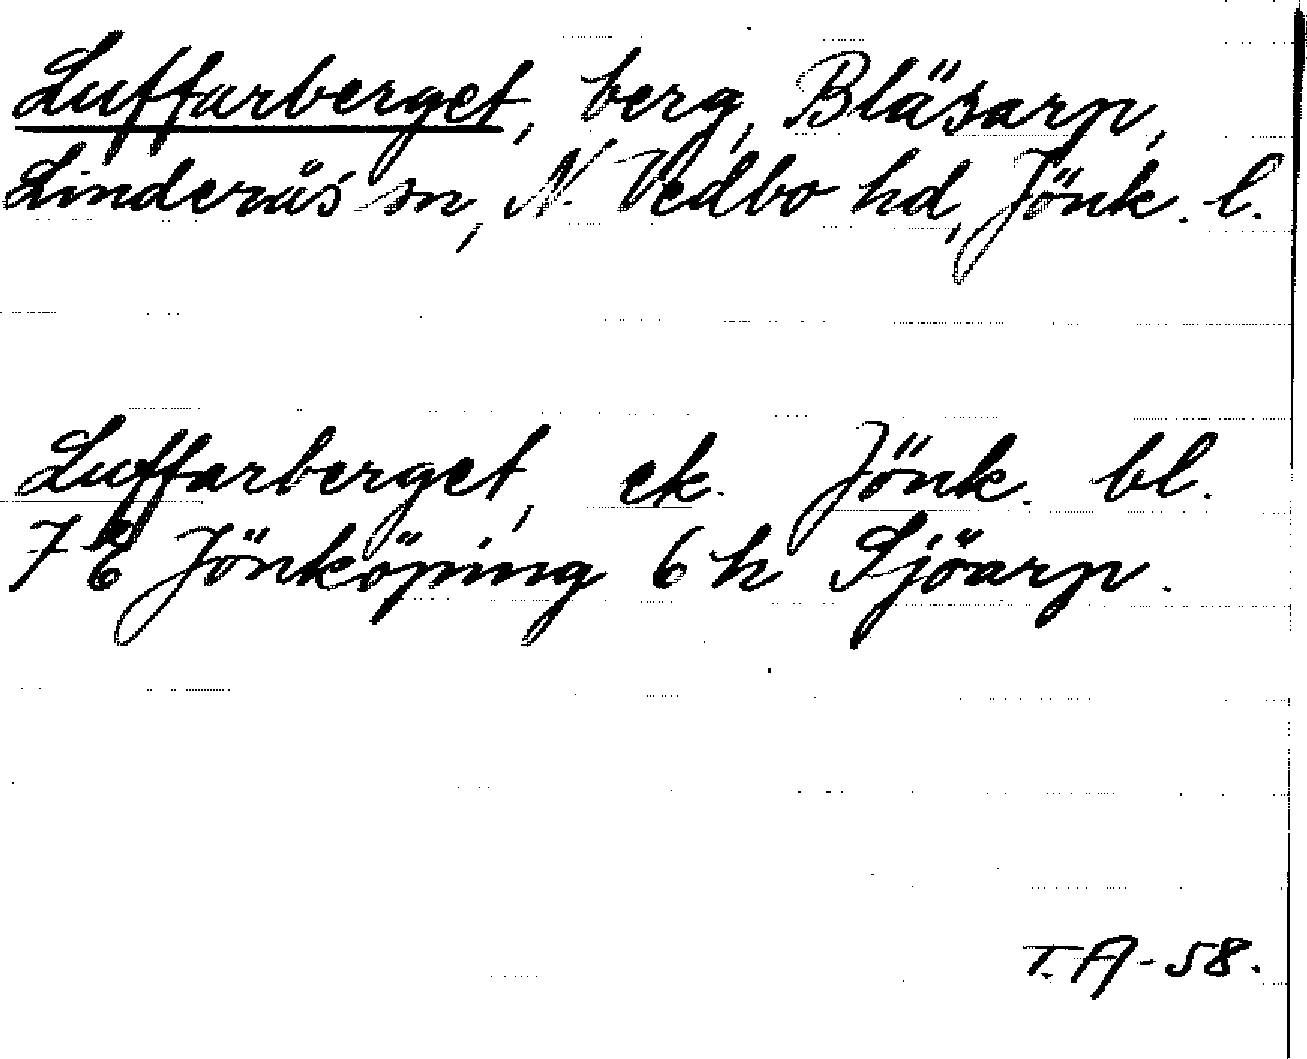 Luffarberget, berg, Bläsarp,
Linderås sn, N. Vedbo hd, Jönk. l.
Luffarberget, ek. Jönk. bl.
7 E Jönköping 6 h Sjöarp.
T.A-58.